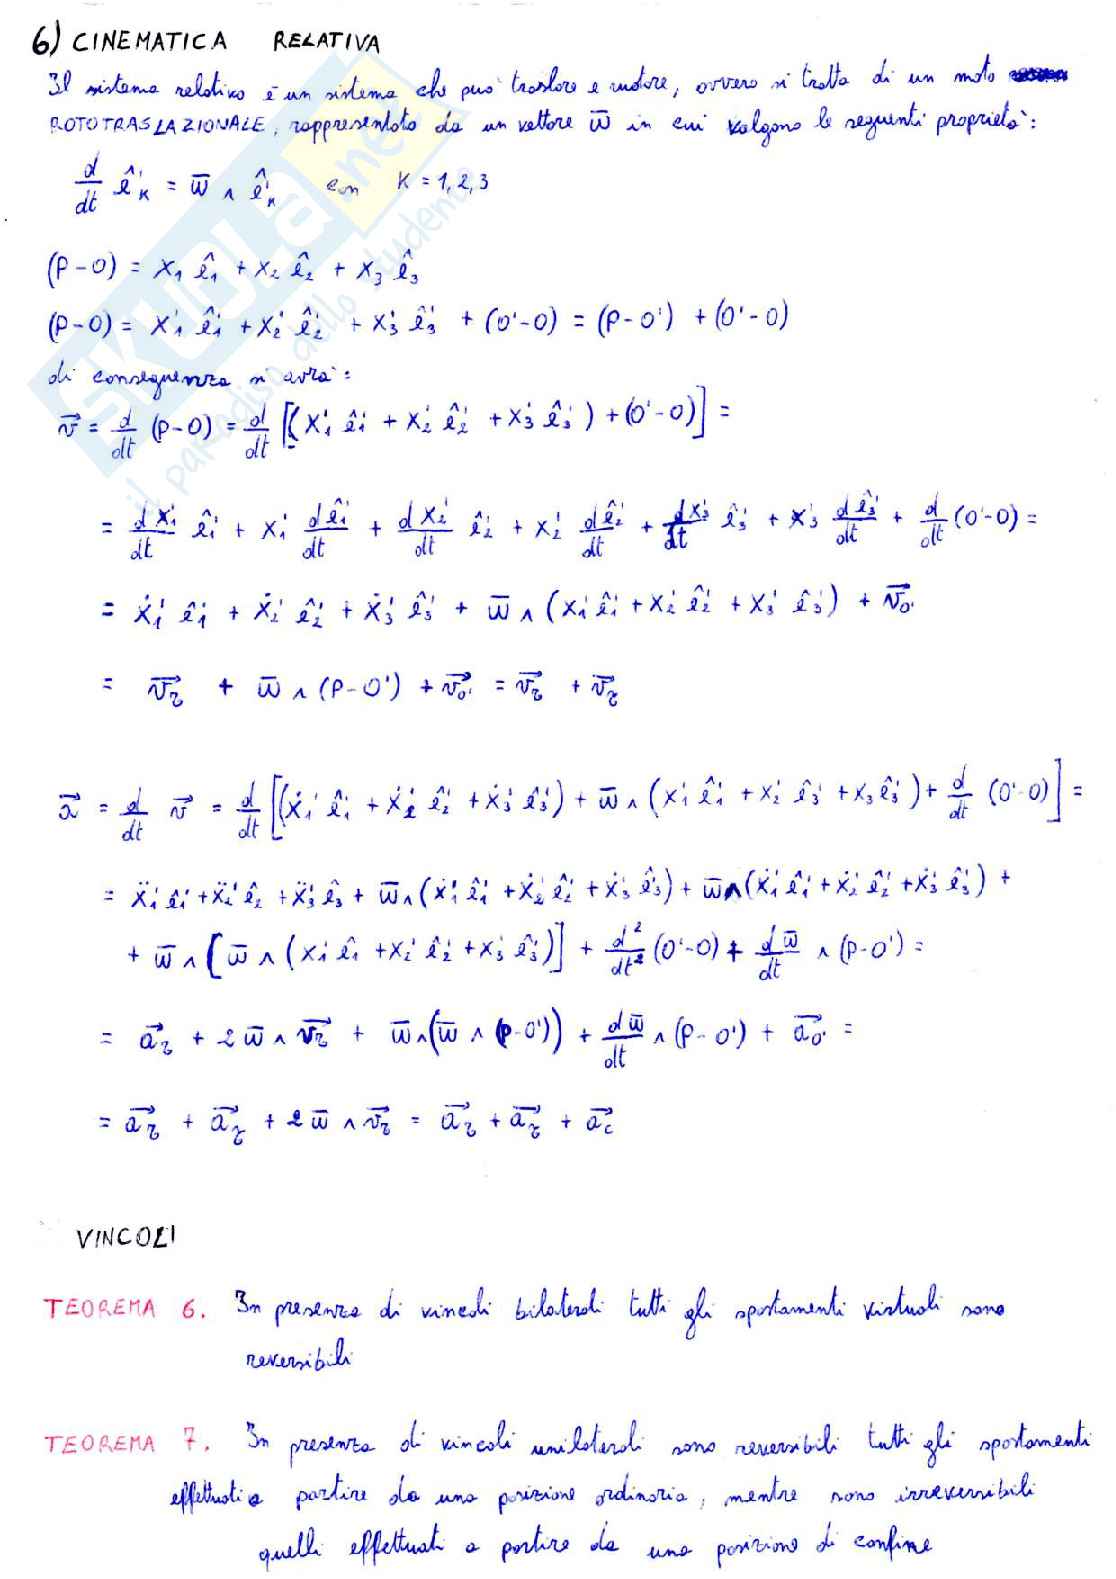 6) CINEMATICA RELATIVA
Il sistema relativo è un sistema che può traslare e ruotare, ovvero si tratta di un moto
ROTOTRASLAZIONALE, rappresentato da un vettore w̅ in cui valgono le seguenti proprietà:
d/dt ê'ₖ = w̅ ∧ ê'ₖ con K = 1, 2, 3
(P-O) = x₁ ê₁ + x₂ ê₂ + x₃ ê₃
(P-O) = x'₁ ê'₁ + x'₂ ê'₂ + x'₃ ê'₃ + (O'-O) = (P-O') + (O'-O)
di conseguenza si avrà:
v⃗ = d/dt (P-O) = d/dt [(x'₁ ê'₁ + x'₂ ê'₂ + x'₃ ê'₃) + (O'-O)] =
= dx'₁/dt ê'₁ + x'₁ dê'₁/dt + dx'₂/dt ê'₂ + x'₂ dê'₂/dt + dx'₃/dt ê'₃ + x'₃ dê'₃/dt + d/dt (O'-O) =
= ẋ'₁ ê'₁ + ẋ'₂ ê'₂ + ẋ'₃ ê'₃ + w̅ ∧ (x'₁ ê'₁ + x'₂ ê'₂ + x'₃ ê'₃) + v⃗ₒ'
= v⃗_r + w̅ ∧ (P-O') + v⃗ₒ' = v⃗_r + v⃗_τ
a⃗ = d/dt v⃗ = d/dt [(ẋ'₁ ê'₁ + ẋ'₂ ê'₂ + ẋ'₃ ê'₃) + w̅ ∧ (x'₁ ê'₁ + x'₂ ê'₃ + x₃ ê'₃) + d/dt (O'-O)] =
= ẍ'₁ ê'₁ + ẍ'₂ ê₂ + ẍ'₃ ê₃ + w̅ ∧ (ẋ'₁ ê'₁ + ẋ'₂ ê'₂ + ẋ'₃ ê'₃) + w̅ ∧ (ẋ'₁ ê'₁ + ẋ'₂ ê'₂ + ẋ'₃ ê'₃) +
+ w̅ ∧ [w̅ ∧ (x'₁ ê₁ + x'₂ ê'₂ + x'₃ ê'₃)] + d²/dt² (O'-O) + dw̅/dt ∧ (P-O') =
= a⃗_r + 2 w̅ ∧ v⃗_r + w̅ ∧ (w̅ ∧ (P-O')) + dw̅/dt ∧ (P-O') + a⃗ₒ' =
= a⃗_r + a⃗_τ + 2 w̅ ∧ v⃗_r = a⃗_r + a⃗_τ + a⃗_c
VINCOLI
TEOREMA 6. In presenza di vincoli bilaterali tutti gli spostamenti virtuali sono
reversibili
TEOREMA 7. In presenza di vincoli unilaterali sono reversibili tutti gli spostamenti
effettuati a partire da una posizione ordinaria, mentre sono irreversibili
quelli effettuati a partire da una posizione di confine
skuola.net
il paradiso dello studente